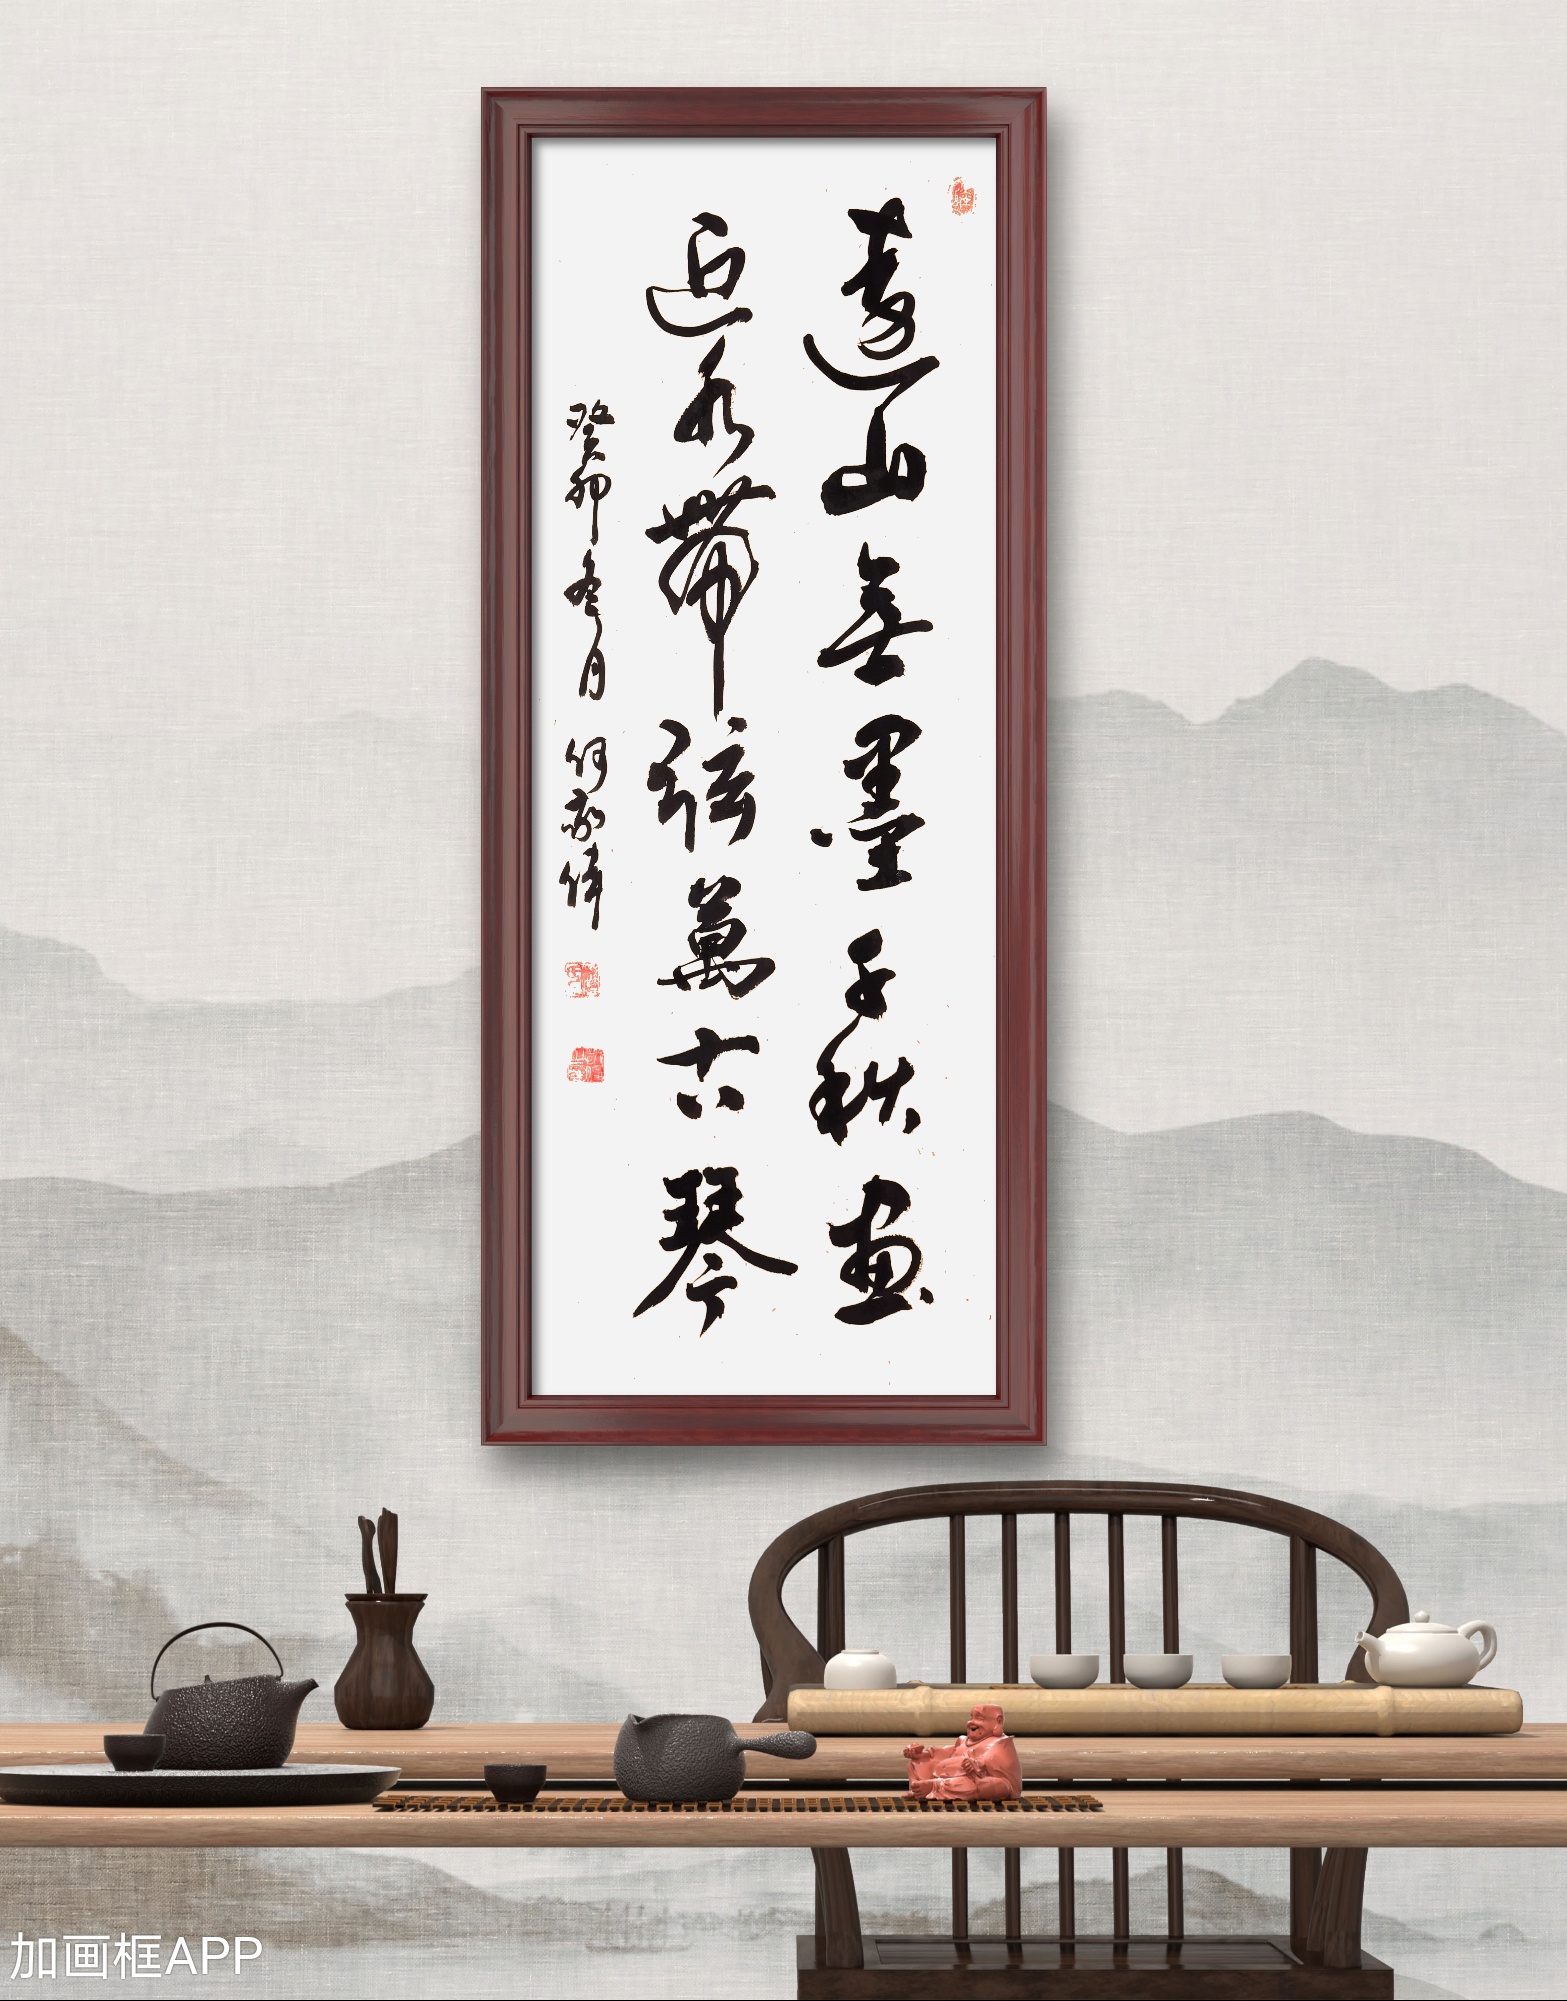 遠山無墨千秋畫
近水帶弦萬古琴
癸卯冬月 何偉
加画框APP